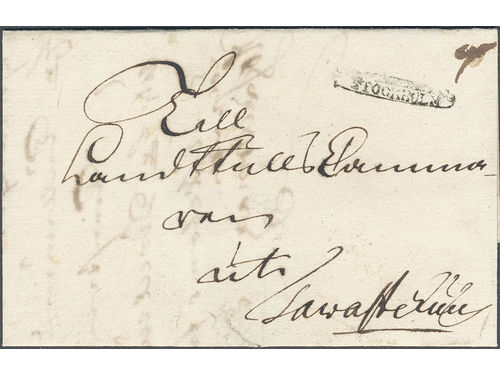 STOCKHOLM
Till
Landttulls Camma
ren
uti
Tawastehuus